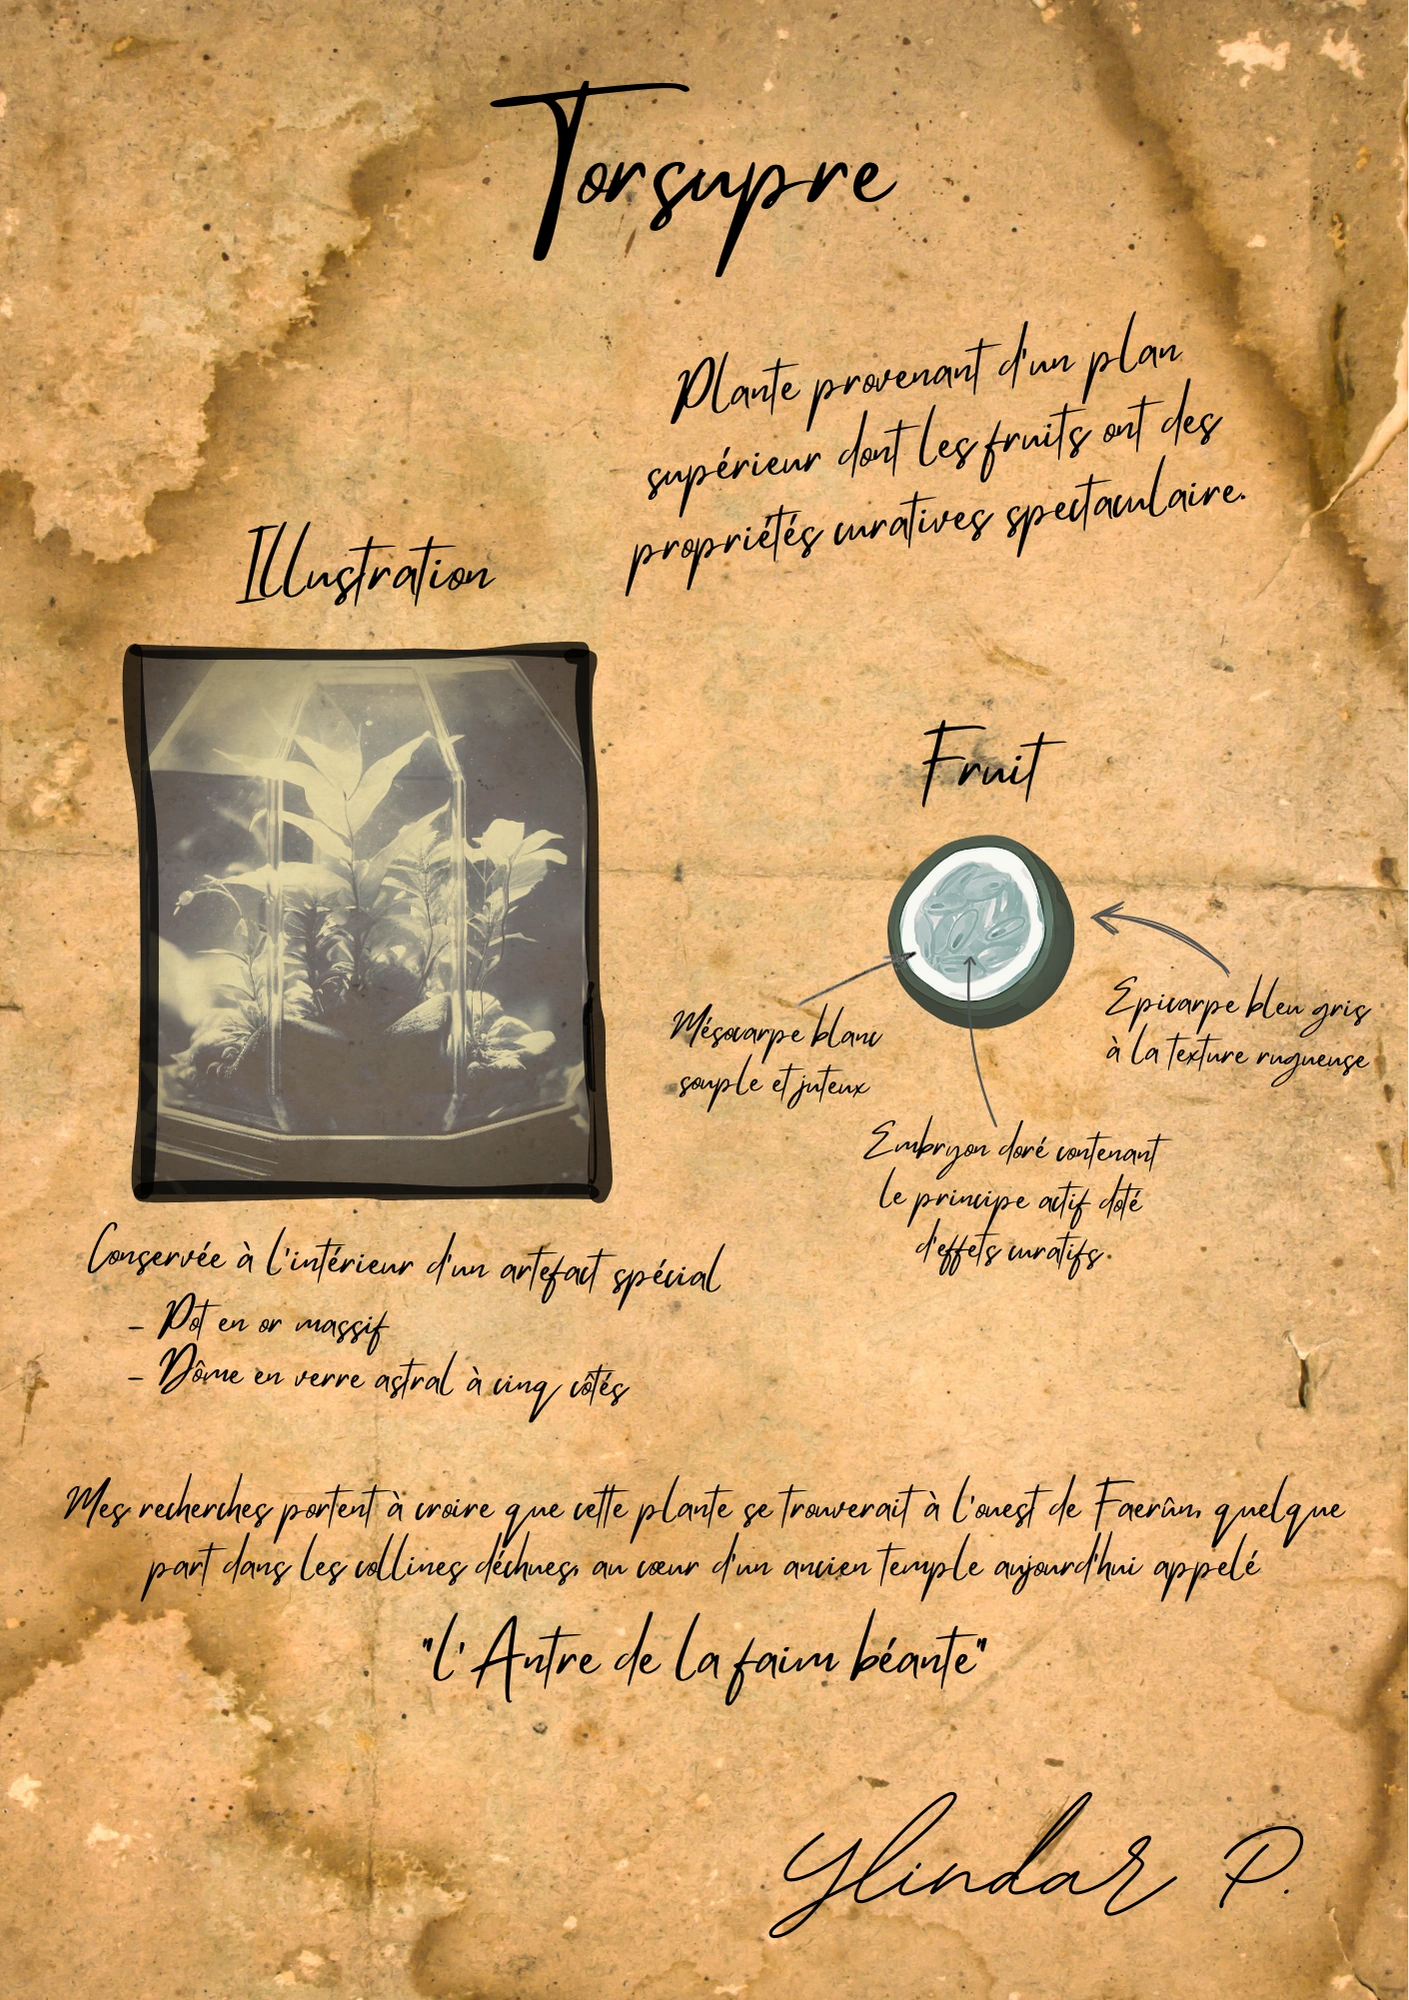 Torsupre
Plante provenant d'un plan
supérieur dont les fruits ont des
propriétés curatives spectaculaire.
Illustration
Fruit
Mésocarpe blanc
souple et juteux
Epicarpe bleu gris
à la texture rugueuse
Embryon doré contenant
le principe actif doté
d'effets curatifs.
Conservée à l'intérieur d'un artefact spécial
- Pot en or massif
- Dôme en verre astral à cinq côtés
Mes recherches portent à croire que cette plante se trouverait à l'ouest de Faerûn, quelque
part dans les collines déchues, au cœur d'un ancien temple aujourd'hui appelé
"l'Antre de la faim béante"
Ylindar P.